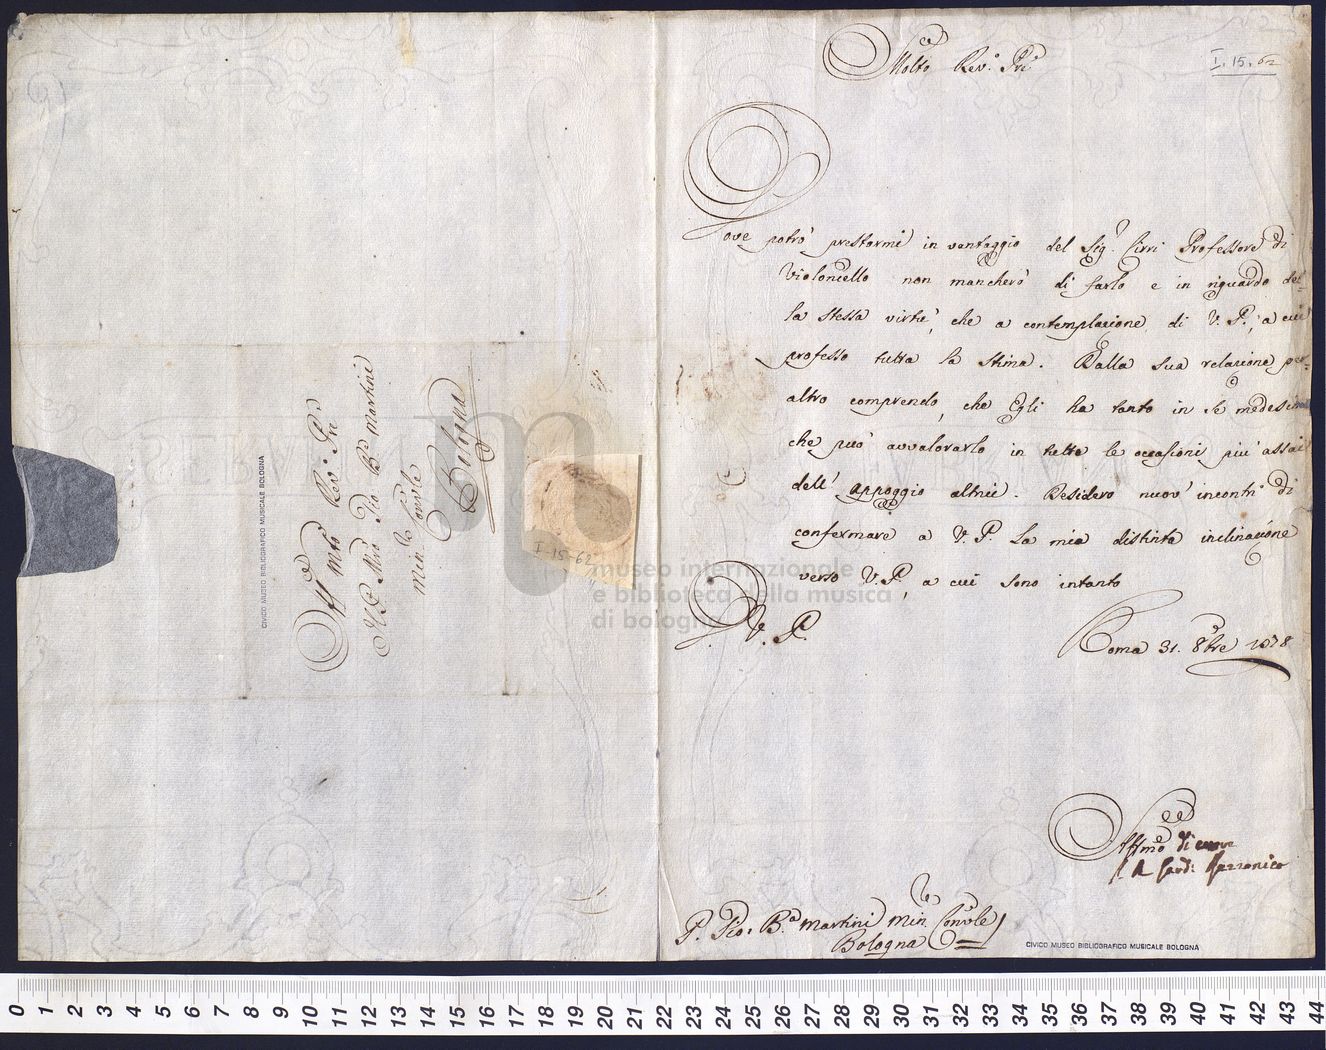 Molto Rev.º Pre
I. 15. 62
ove potrò prestarmi in vantaggio del Sig.r Cirri Professore di
Violoncello non mancherò di farlo e in riguardo del-
la stessa virtù, che a contemplazione di V. P., a cui
professo tutta la stima. Dalla sua relazione per-
altro comprendo, che Egli ha tanto in se medesimo
che può avvalorarlo in tutte le occasioni più assai
dell' appoggio altrui. Desidero nuovi incontri di
confermare a V. P. la mia distinta inclinazione
verso V. P., a cui sono intanto
V. P.
Roma 31. 8bre
Affmo di cuore
Card: Rezzonico
P. Gio: B.a Martini Min. Conv.le
Bologna
CIVICO MUSEO BIBLIOGRAFICO MUSICALE BOLOGNA
Rev.º Pre
Gio B.a Martini
Min. Conv.le
Bologna
CIVICO MUSEO BIBLIOGRAFICO MUSICALE BOLOGNA
I-15-62
museo internazionale
e biblioteca della musica
di bologna
0 1 2 3 4 5 6 7 8 9 10 11 12 13 14 15 16 17 18 19 20 21 22 23 24 25 26 27 28 29 30 31 32 33 34 35 36 37 38 39 40 41 42 43 44